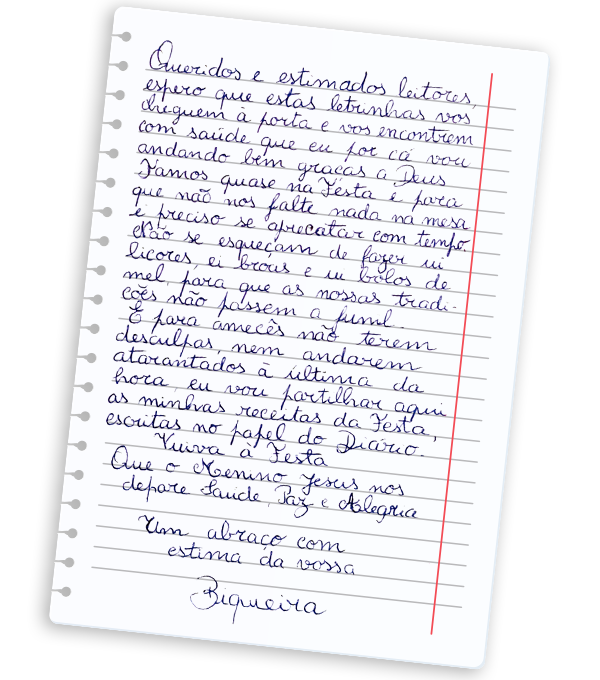 Queridos e estimados leitores,
espero que estas letrinhas vos
cheguem à porta e vos encontrem
com saúde que eu por cá vou
andando bem graças a Deus
Vamos quase na Festa e para
que não nos falte nada na mesa
é preciso se aprecatar com tempo.
Não se esqueçam de fazer ui
licores, ei brous e ui bolos de
mel, para que as nossas tradi-
ções não passem a fumf.
E para amecês não terem
desculpas, nem andarem
atarantados à última da
hora, eu vou partilhar aqui
as minhas receitas da Festa,
escritas no papel do Diário.
Vuiva à Festa
Que o Menino Jesus nos
depare Saúde, Paz e Alegria
Um abraço com
estima da vossa
Biqueira